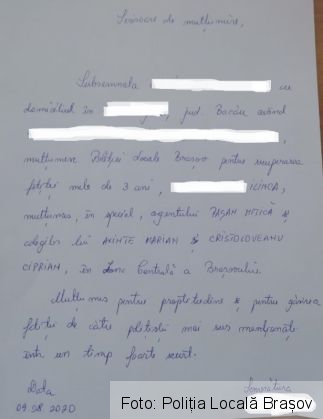 Scrisoare de mulțumire,
Subsemnata cu
domiciliul în jud. Bacău având
mulțumesc Poliției Locale Brașov pentru recuperarea
fetiței mele de 3 ani, ILINCA,
mulțumesc, în special, agentului PAȘAN MITICĂ și
colegilor lui AXINTE MARIAN și CRISTOLOVEANU
CIPRIAN, în Zona Centrală a Brașovului.
Mulțumesc pentru promptitudine și pentru găsirea
fetiței de către polițiștii mai sus menționați
într-un timp foarte scurt.
Data Semnătura
09.08.2020
Foto: Poliția Locală Brașov